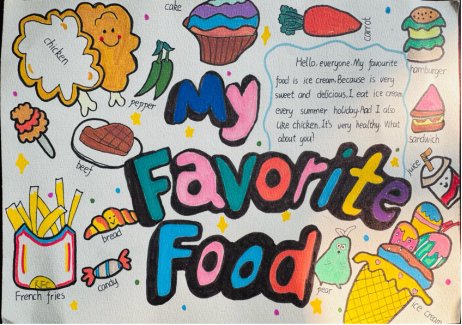 cake
carrot
chicken
pepper
hamburger
Hello, everyone. My favourite
food is ice cream. Because is very
sweet and delicious. I eat ice cream
every summer holiday. And I also
like chicken. It's very healthy. What
about you?
My
sandwich
beef
juice
Favorite
bread
Food
candy
KFC
French fries
pear
ice cream